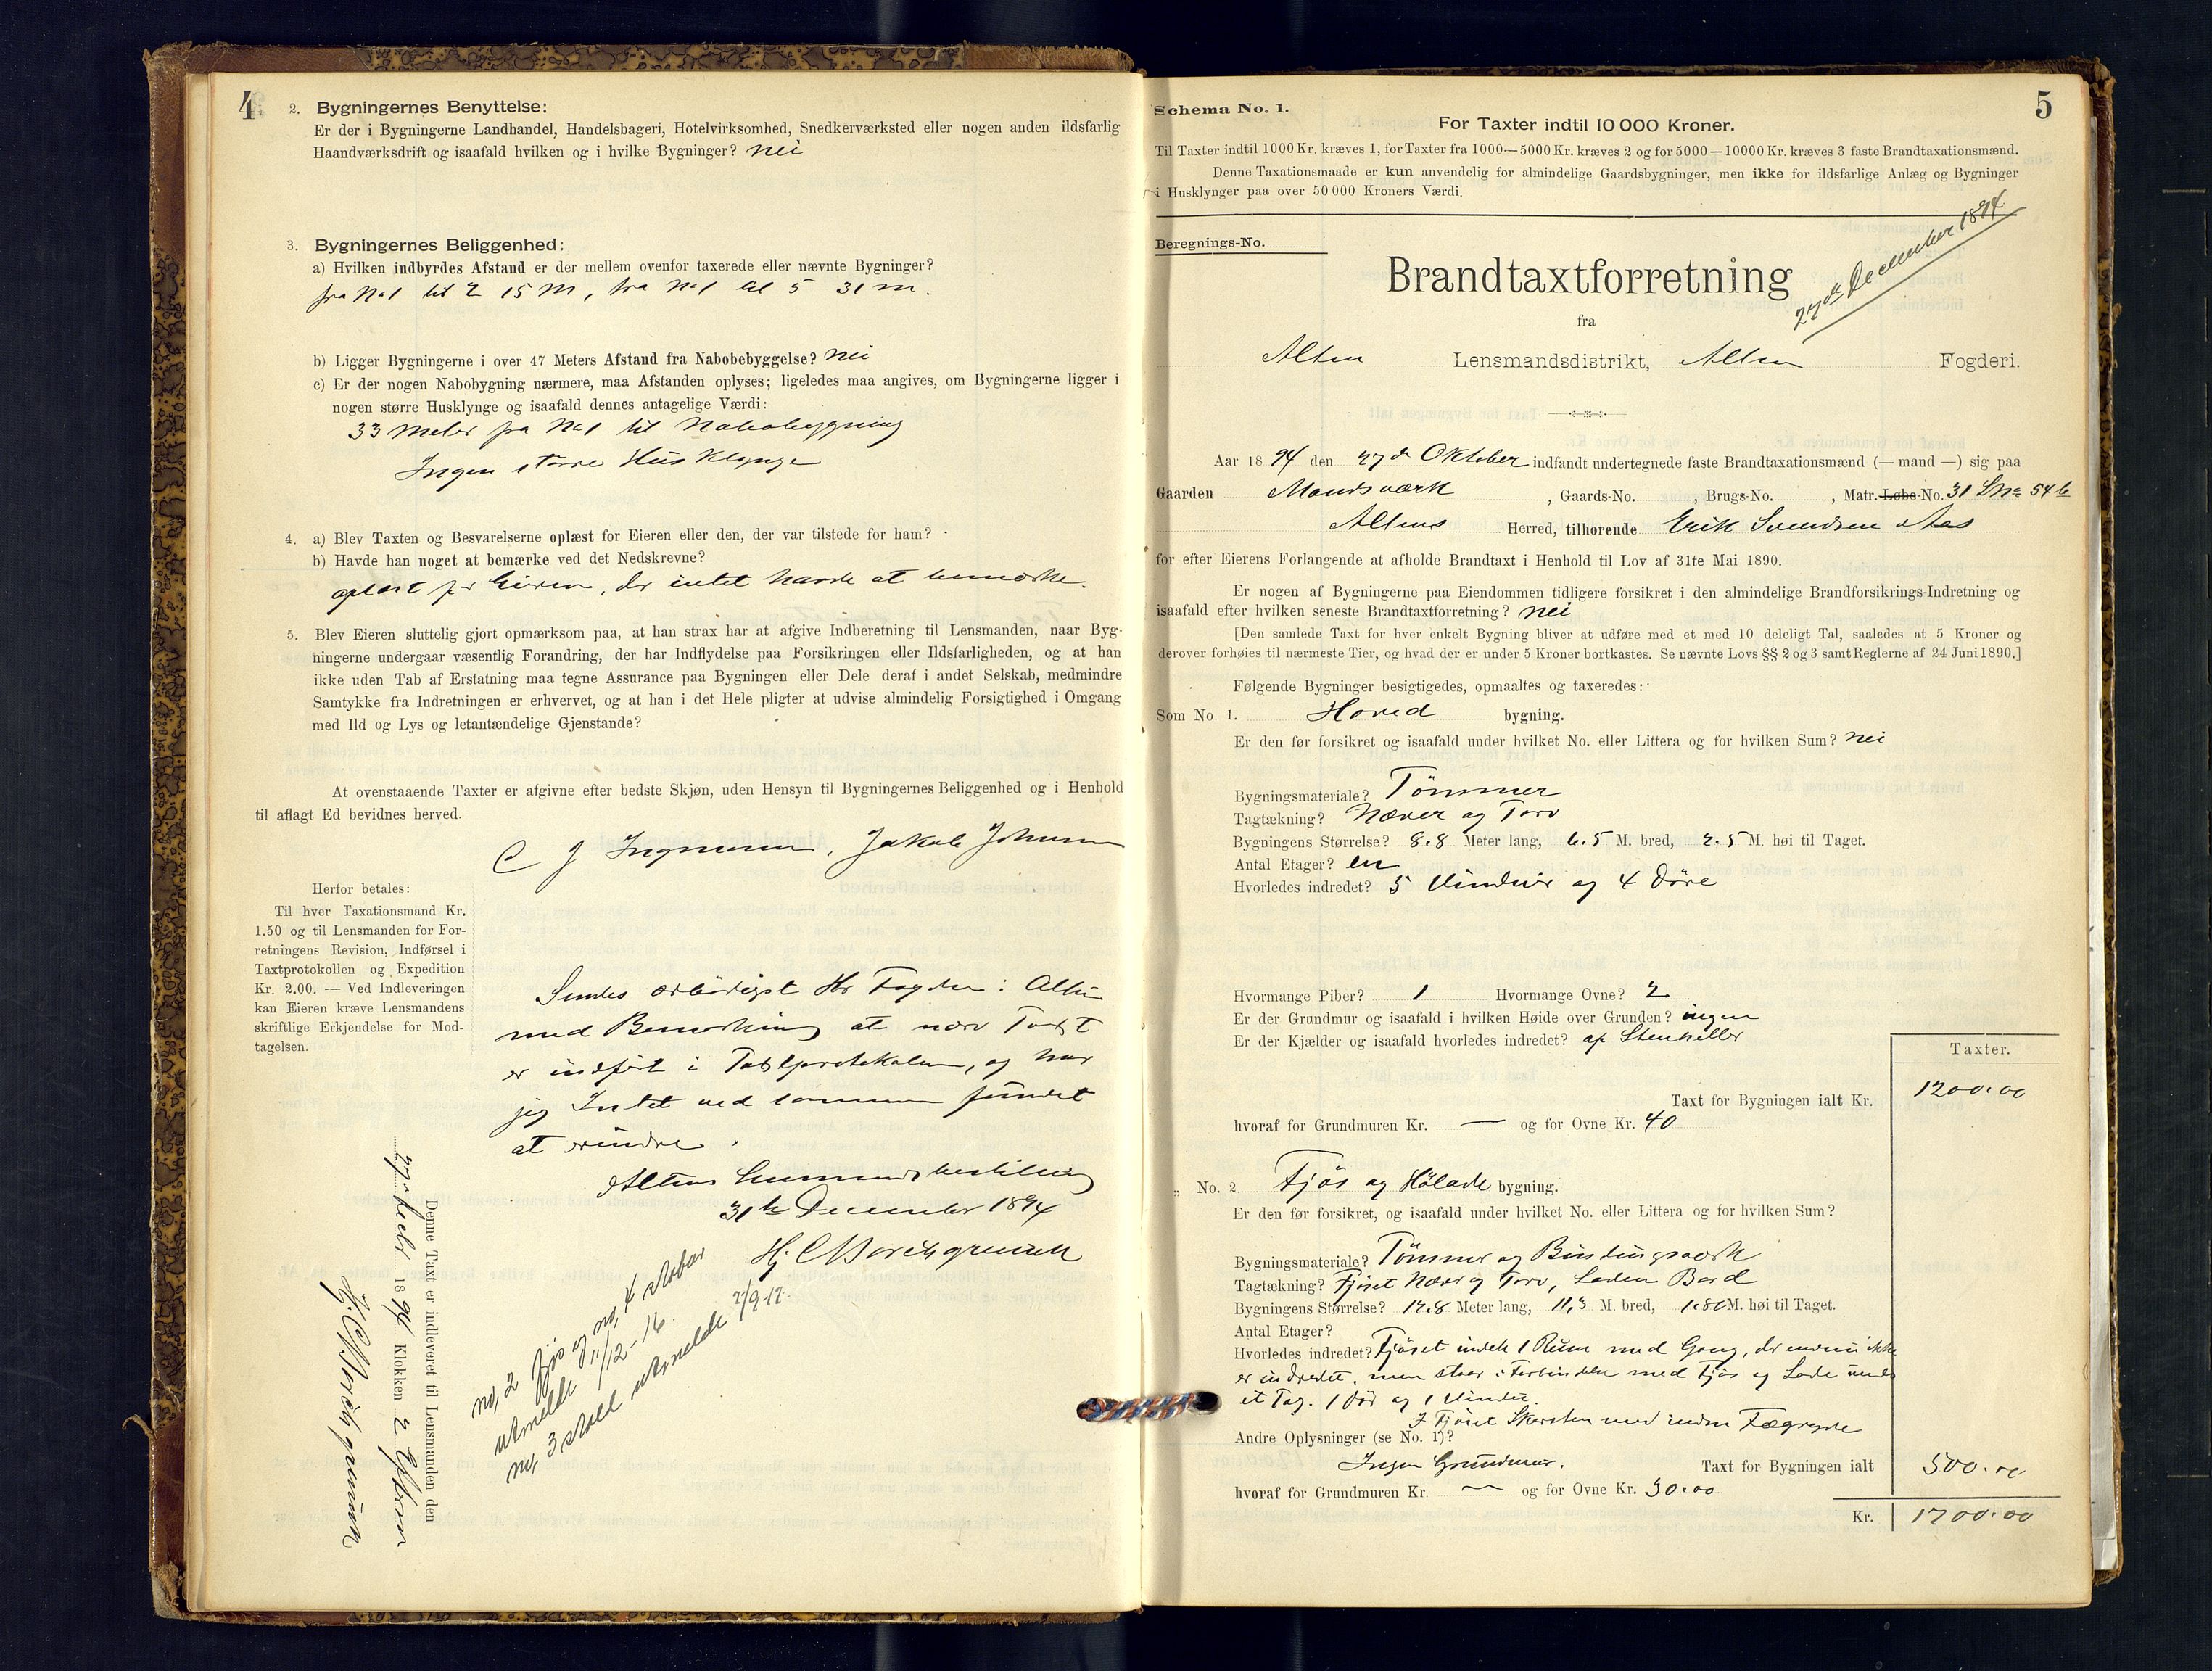 4
2. Bygningernes Benyttelse:
Er der i Bygningerne Landhandel, Handelsbageri, Hotelvirksomhed, Snedkerværksted eller nogen anden ildsfarlig
Haandværksdrift og isaafald hvilken og i hvilke Bygninger? nei
3. Bygningernes Beliggenhed:
a) Hvilken indbyrdes Afstand er der mellem ovenfor taxerede eller nævnte Bygninger?
fra No 1 til 2 15 M, fra No 1 til 5 31 m.
b) Ligger Bygningerne i over 47 Meters Afstand fra Nabobebyggelse? nei
c) Er der nogen Nabobygning nærmere, maa Afstanden oplyses; ligeledes maa angives, om Bygningerne ligger i
nogen større Husklynge og isaafald dennes antagelige Værdi:
33 Meter fra No 1 til Nabobygning
Ingen større Husklynge
4. a) Blev Taxten og Besvarelserne oplæst for Eieren eller den, der var tilstede for ham?
b) Havde han noget at bemærke ved det Nedskrevne?
oplæst for Eieren, der intet havde at bemærke.
5. Blev Eieren sluttelig gjort opmærksom paa, at han strax har at afgive Indberetning til Lensmanden, naar Byg-
ningerne undergaar væsentlig Forandring, der har Indflydelse paa Forsikringen eller Ildsfarligheden, og at han
ikke uden Tab af Erstatning maa tegne Assurance paa Bygningen eller Dele deraf i andet Selskab, medmindre
Samtykke fra Indretningen er erhvervet, og at han i det Hele pligter at udvise almindelig Forsigtighed i Omgang
med Ild og Lys og letantændelige Gjenstande?
At ovenstaaende Taxter er afgivne efter bedste Skjøn, uden Hensyn til Bygningernes Beliggenhed og i Henhold
til aflagt Ed bevidnes herved.
C J Ingmann, Jakob Johnsen
Herfor betales:
Til hver Taxationsmand Kr.
1.50 og til Lensmanden for For-
retningens Revision, Indførsel i
Taxtprotokollen og Expedition
Kr. 2.00. — Ved Indleveringen
kan Eieren kræve Lensmandens
skriftlige Erkjendelse for Mod-
tagelsen.
Sendes ærbødigst Hr Fogden i Alten
med Bemærkning at nærv Taxt
er indført i Taxtprotokolen, og har
jeg Intet ved samme fundet
at erindre.
Altens Lensmandsbestilling
31te December 1894
Hj. C Borchgrevink
Denne Taxt er indleveret til Lensmanden den
27de Decbr 1894 Klokken 2 Efterm
Hj. C Borchgrevink
no, 2 fjøs og no, 4 stabur
utmeldt 11/12-16.
no, 3 stall utmeldt 7/9-17.
Schema No. 1.
5
For Taxter indtil 10 000 Kroner.
Til Taxter indtil 1000 Kr. kræves 1, for Taxter fra 1000—5000 Kr. kræves 2 og for 5000—10000 Kr. kræves 3 faste Brandtaxationsmænd.
Denne Taxationsmaade er kun anvendelig for almindelige Gaardsbygninger, men ikke for ildsfarlige Anlæg og Bygninger
i Husklynger paa over 50 000 Kroners Værdi.
Beregnings-No.
27de December 1894
Brandtaxtforretning
fra
Alten Lensmandsdistrikt, Alten Fogderi.
Aar 1894 den 27de Oktober indfandt undertegnede faste Brandtaxationsmænd (— mand —) sig paa
Gaarden Mandsværk, Gaards-No. , Brugs-No. , Matr. Løbe-No. 31 LNo 54 b
Altens Herred, tilhørende Erik Svendsen Aas
for efter Eierens Forlangende at afholde Brandtaxt i Henhold til Lov af 31te Mai 1890.
Er nogen af Bygningerne paa Eiendommen tidligere forsikret i den almindelige Brandforsikrings-Indretning og
isaafald efter hvilken seneste Brandtaxtforretning? nei
[Den samlede Taxt for hver enkelt Bygning bliver at udføre med et med 10 deleligt Tal, saaledes at 5 Kroner og
derover forhøies til nærmeste Tier, og hvad der er under 5 Kroner bortkastes. Se nævnte Lovs §§ 2 og 3 samt Reglerne af 24 Juni 1890.]
Følgende Bygninger besigtigedes, opmaaltes og taxeredes:
Som No. 1. Hoved bygning.
Er den før forsikret og isaafald under hvilket No. eller Littera og for hvilken Sum? nei
Bygningsmateriale? Tømmer
Tagtækning? Næver og Torv
Bygningens Størrelse? 8.8 Meter lang, 6.5 M. bred, 2.5 M. høi til Taget.
Antal Etager? en
Hvorledes indredet? 5 Vinduer og 4 Døre
Hvormange Piber? 1 Hvormange Ovne? 2
Er der Grundmur og isaafald i hvilken Høide over Grunden? ingen
Er der Kjælder og isaafald hvorledes indredet? af Stenheller
Taxter.
Taxt for Bygningen ialt Kr. 1200.00
hvoraf for Grundmuren Kr. — og for Ovne Kr. 40
„ No. 2 Fjøs og Hølade bygning.
Er den før forsikret, og isaafald under hvilket No. eller Littera og for hvilken Sum?
Bygningsmateriale? Tømmer og Bindingsværk
Tagtækning? Fjøset Næver og Torv, Laden Bord
Bygningens Størrelse? 12.8 Meter lang, 11,3 M. bred, 1.80 M. høi til Taget.
Antal Etager?
Hvorledes indredet? Fjøset indeh 1 Rum med Gang, der endnu ikke
er indredet, men staar i Forbindelse med Fjøs og Lade under
et Tag. 1 Dør og 1 Vindu.
I Fjøset Skorsten med inden Fægryde
Andre Oplysninger (se No. 1)?
Ingen Grundmur. Taxt for Bygningen ialt 500.00
hvoraf for Grundmuren Kr. — og for Ovne Kr. 30.00
Kr. 1700.00